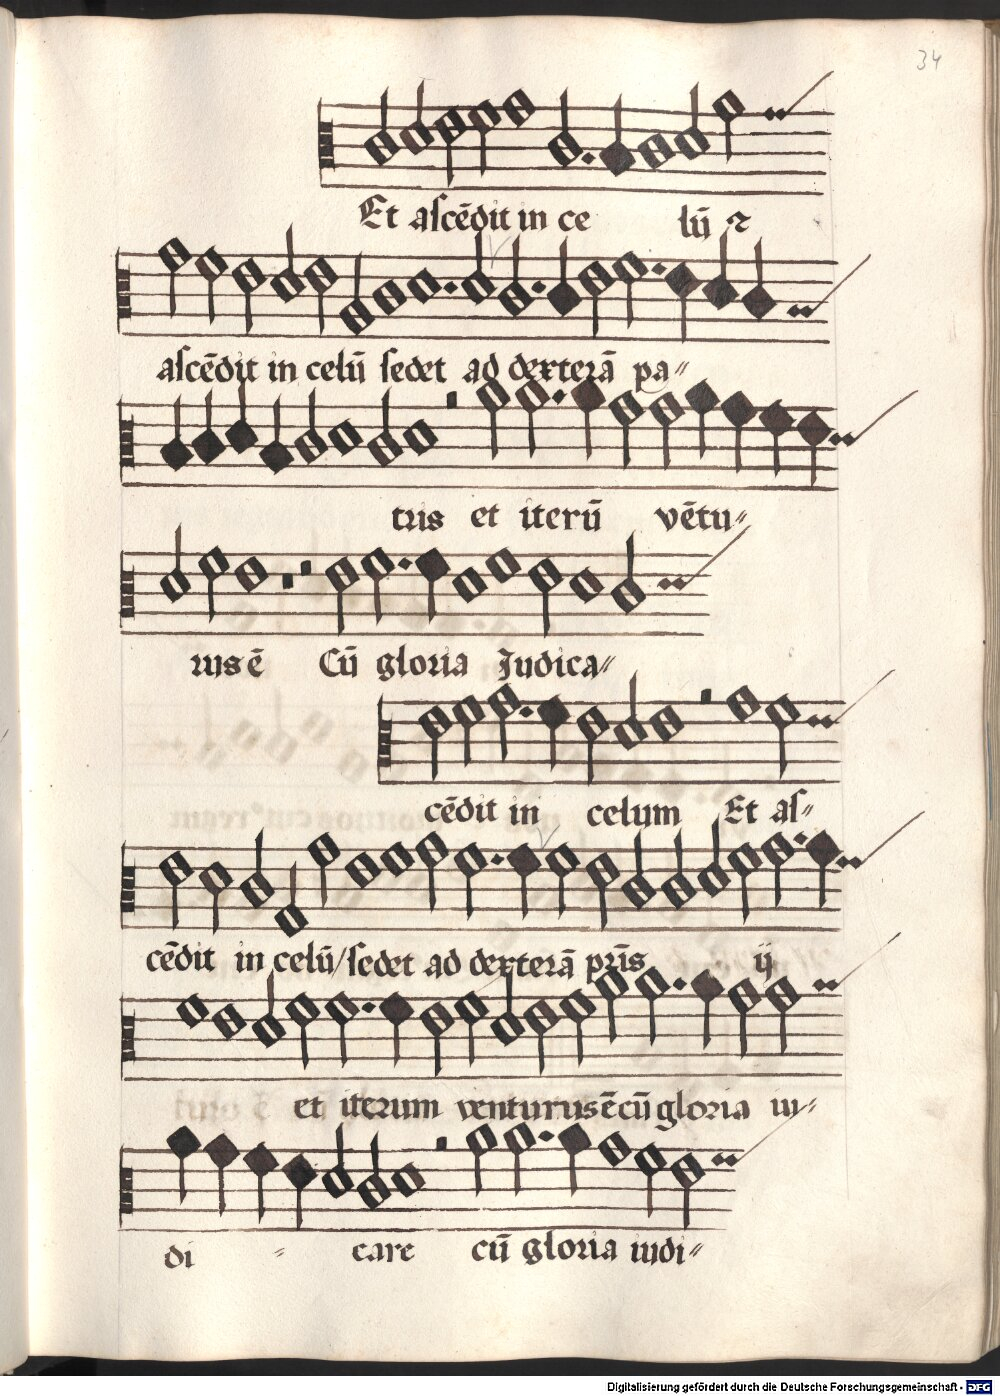 34
Et ascēdit in ce lū ꝛ
ascēdit in celū sedet ad dexterā pa〃
tris et iterū vētu〃
rus ē Cū gloria Iudica〃
cēdit in celum Et as〃
cēdit in celū/sedet ad dexterā pr̄is ij
et iterum venturus ē cū gloria iu〃
di〃 care cū gloria iudi〃
Digitalisierung gefördert durch die Deutsche Forschungsgemeinschaft - DFG